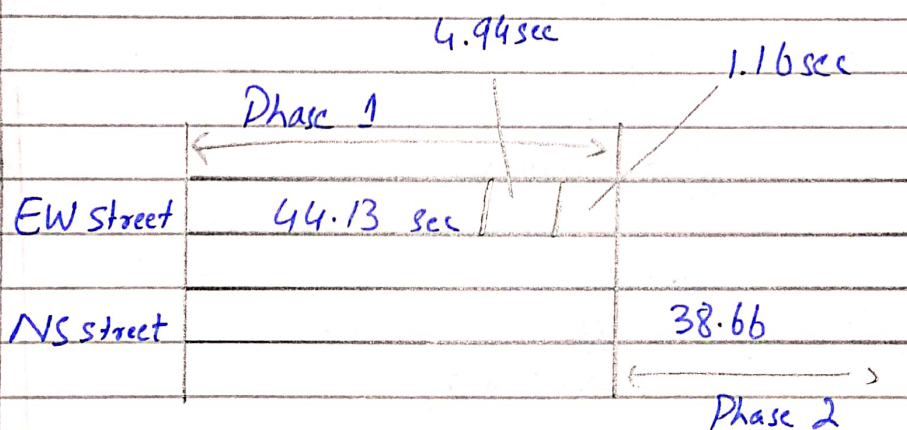 4.94 sec
1.16 sec
Phase 1
EW Street 44.13 sec
NS street 38.66
Phase 2